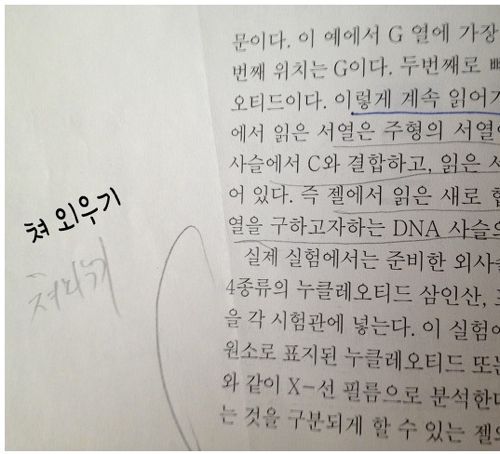 문이다. 이 예에서 G 열에 가장
번째 위치는 G이다. 두번째로
오티드이다. 이렇게 계속 읽어
에서 읽은 서열은 주형의 서열
사슬에서 C와 결합하고, 읽은
어 있다. 즉 젤에서 읽은 새로
열을 구하고자하는 DNA 사슬
실제 실험에서는 준비한 외사
4종류의 누클레오티드 삼인산,
을 각 시험관에 넣는다. 이 실험에
원소로 표지된 누클레오티드 또는
와 같이 X-선 필름으로 분석한다
는 것을 구분되게 할 수 있는 젤
쳐 외우기